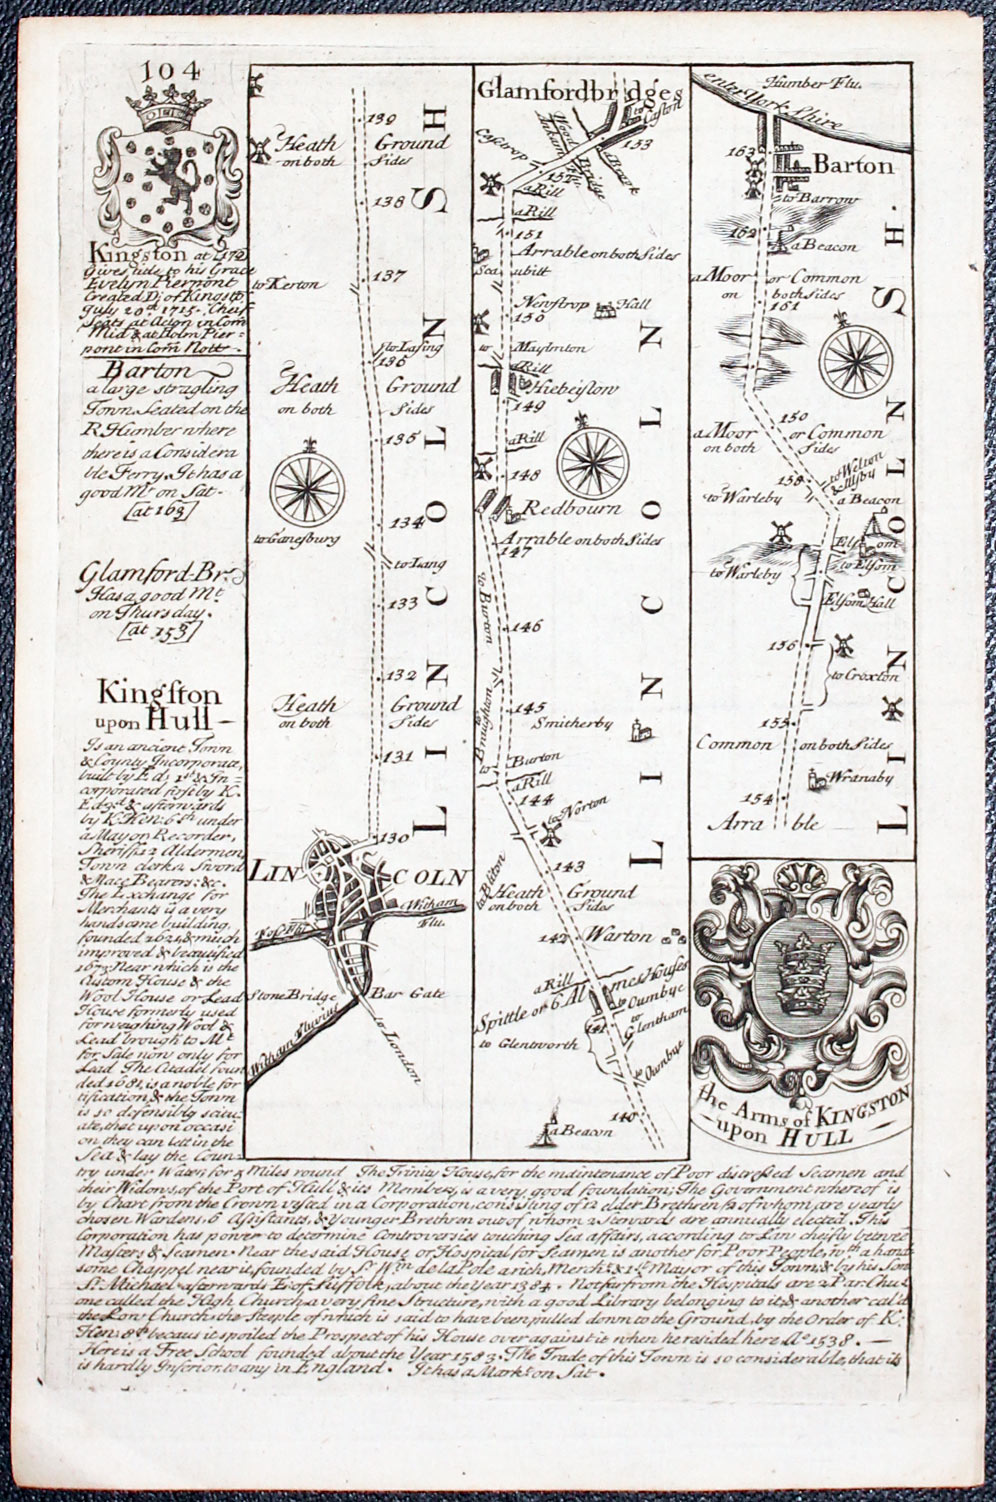 104
Kingston at 172
Gives title to his Grace
Evelyn Pierpont
Created D: of Kingstō
July 20th 1715. Cheif
Seats at Acton in Com̄
Mid & at Holm Pier=
pont in Com̄ Nott.
Barton
a large stragling
Town Seated on the
R. Humber where
there is a Considera
ble Ferry. It has a
good Mt. on Sat.
[at 163]
Glamford-Br.
Has a good Mt
on Thursday.
[at 153]
Kingston
upon Hull
Is an ancient Town
& County Incorporate,
built by Ed; 1st & In=
corporated first by K.
Ed. 3d & afterwards
by K. Hen: 6th under
a Mayor, Recorder,
Sheriff, 12 Aldermen,
Town clerk, Sword
& Mace Bearors: &c.
The Exchange for
Merchants is a very
handsome building,
founded 1621, & much
improved & beautified
1673. Near which is the
Custom House & the
Wool House or Lead
House formerly used
for weighing Wool &
Lead brough to Mt
for Sale now only for
Lead. The Citadel foun
ded 1681, is a noble for
tification, & the Town
is so defensibly scitu
ate, that upon occasi
on they can lett in the
Sea & lay the Coun=
try under Water, for 5 Miles round The Trinity House, for the maintenance of Poor distressed Seamen and
their Widows, of the Port of Hull & its Members, is a very good foundation; The Government whereof is
by Chart from the Crown vested in a Corporation, consisting of 12 elder Brethren, 2 of whom are yearly
chosen Wardens, 6 Assistants, & Younger Brethren out of whom 2 Stewards are annually elected. This
Corporation has power to determine Controversies touching Sea affairs, according to Law cheifly betwixt
Masters & Seamen. Near the said House or Hospital for Seamen is another for Poor People, wth a hand
some Chappel near it, founded by Sr. Wm de la Pole a rich Merch: & 1st Mayor of this Town, & by his Son
Sr. Michael afterwards E: of Suffolk, about the Year 1384. Not far from the Hospitals are 2 Par. Chu:
one called the High Church, a very fine Structure, with a good Library belonging to it, & another cal'd
the Low Church, the Steeple of which is said to have been pulled down to the Ground, by the Order of K.
Hen: 8th becaus it spoiled the Prospect of his House over against it when he resided here Ao. 1538.
Here is a Free School founded about the Year 1583. The Trade of this Town is so considerable, that its
is hardly Inferior to any in England. It has a Mark: on Sat.
LINCOLN SH
139
Heath Ground
on both Sides
138
137
to Kerton
to Lasing
136
Heath Ground
on both Sides
135
134
to Ganesburg
to Lang
133
132
Heath Ground
on both Sides
131
130
LINCOLN
Witham Flu.
Fos Flu
Stone Bridge
Bar Gate
Witham Fluvius
to London
LINCOLN
Glamfordbridges
to Caston
153
Castrop
Ankam Flu.
Bridge
152
a Rill
a Rill
151
Arrable on both Sides
Scaubitt
Newstrop Hall
150
to Maybnton
a Rill
Hiebeistow
149
a Rill
148
Redbourn
Arrable on both Sides
147
to Burton
146
to Broughton
145
Smitherby
to Burton
a Rill
144
to Norton
143
to Bliton
Heath Ground
on both Sides
142
Warton
a Rill
Spittle or 6 Almes Houses
to Ownbye
to Glentham
141
to Glentworth
to Ownbye
140
a Beacon
LINCOLN SH.
Humber Flu.
enter York Shire
163
Barton
to Barrow
162
a Beacon
a Moor or Common
on both sides
161
150
a Moor or Common
on both Sides
to Welton
& Ulsby
158
to Warleby
a Beacon
Elsom
to Elsom
to Warleby
Elsom Hall
156
to Croxton
155
Common on both Sides
Wranaby
154
Arrable
the Arms of KINGSTON
upon HULL